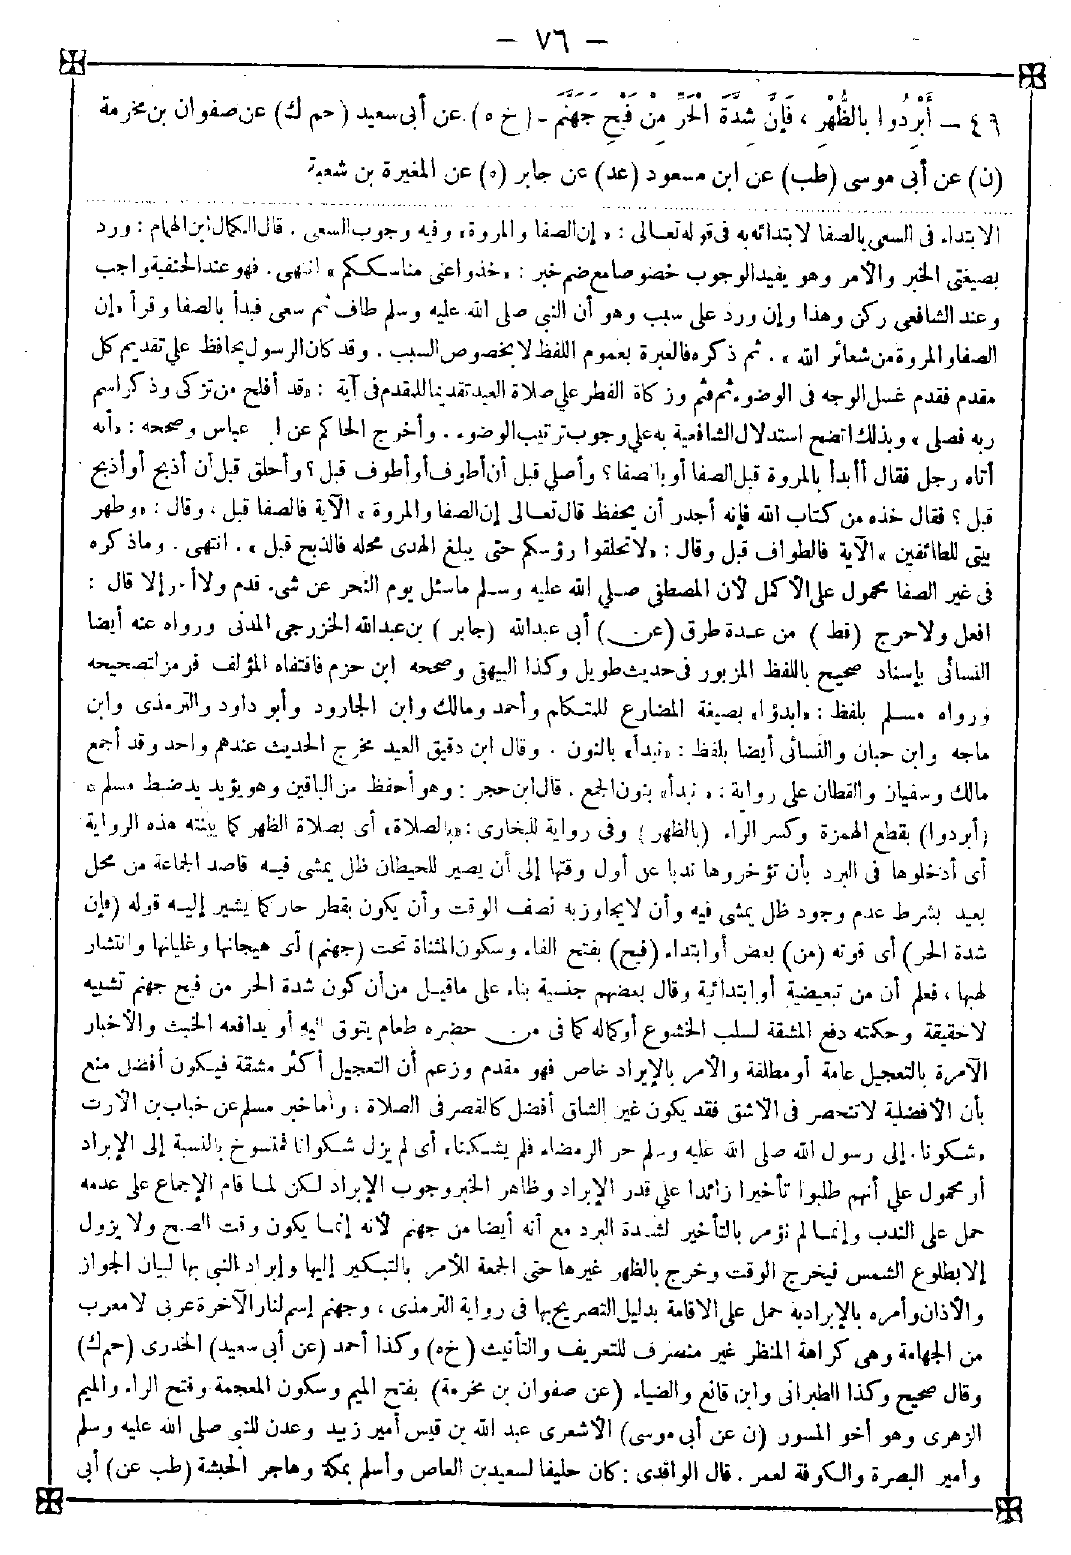 – ٧٦ –
٤٩ – أَبْرِدُوا بِالظُّهْرِ ، فَإِنَّ شِدَّةَ الْحَرِّ مِنْ فَيْحِ جَهَنَّمَ – (خ ه) عن أبى سعيد (حم ك) عن صفوان بن مخرمة
(ن) عن أبى موسى (طب) عن ابن مسعود (عد) عن جابر (ه) عن المغيرة بن شعبة
الابتداء فى السعى بالصفا لابتدائه به فى قوله تعالى : «إن الصفا والمروة» وفيه وجوب السعى . قال الكمال ابن الهمام : ورد
بصيغتى الخبر والأمر وهو يفيد الوجوب خصوصا مع ضم خبر : «خذوا عنى مناسككم» انتهى . فهو عند الحنفية واجب
وعند الشافعى ركن وهذا وإن ورد على سبب وهو أن النبى صلى الله عليه وسلم طاف ثم سعى فبدأ بالصفا وقرأ «إن
الصفا والمروة من شعائر الله» . ثم ذكره فالعبرة بعموم اللفظ لا بخصوص السبب . وقد كان الرسول يحافظ على تقديم كل
مقدم فقدم غسل الوجه فى الوضوء ثم فثم وزكاة الفطر على صلاة العيد تقديما للمقدم فى آية : «قد أفلح من تزكى وذكر اسم
ربه فصلى» وبذلك اتضح استدلال الشافعية به على وجوب ترتيب الوضوء . وأخرج الحاكم عن ا عباس وصححه : «أنه
أتاه رجل فقال أأبدأ بالمروة قبل الصفا أو بالصفا ؟ وأصلى قبل أن أطوف أو أطوف قبل ؟ وأحلق قبل أن أذبح أو أذبح
قبل ؟ فقال خذه من كتاب الله فإنه أجدر أن يحفظ قال تعالى إن الصفا والمروة» الآية فالصفا قبل ، وقال : «وطهر
بيتى للطائفين» الآية فالطواف قبل وقال : «لا تحلقوا رؤسكم حتى يبلغ الهدى محله فالذبح قبل» . انتهى . وما ذكره
فى غير الصفا محمول على الأكمل لأن المصطفى صلى الله عليه وسلم ما سئل يوم النحر عن شىء قدم ولا أخر إلا قال :
افعل ولا حرج (قط) من عدة طرق (عن) أبى عبدالله (جابر) بن عبدالله الخزرجى المدنى ورواه عنه أيضا
النسائى بإسناد صحيح باللفظ المزبور فى حديث طويل وكذا البيهقى وصححه ابن حزم فاقتفاه المؤلف فرمز لتصحيحه
ورواه مسلم بلفظ : «ابدؤا» بصيغة المضارع للمتكلم وأحمد ومالك وابن الجارود وأبو داود والترمذى وابن
ماجه وابن حبان والنسائى أيضا بلفظ : «نبدأ» بالنون . وقال ابن دقيق العيد مخرج الحديث عندهم واحد وقد أجمع
مالك وسفيان والقطان على رواية : «نبدأ» بنون الجمع . قال ابن حجر : وهو أحفظ من الباقين وهو يؤيد يد ضبط مسلم»
(أبردوا) بقطع الهمزة وكسر الراء (بالظهر) وفى رواية للبخارى : «بالصلاة» أى بصلاة الظهر كما بينته هذه الرواية
أى أدخلوها فى البرد بأن تؤخروها ندبا عن أول وقتها إلى أن يصير للحيطان ظل يمشى فيه قاصد الجماعة من محل
بعيد بشرط عدم وجود ظل يمشى فيه وأن لا يجاوز به نصف الوقت وأن يكون بقطر حار كما يشير إليه قوله (فإن
شدة الحر) أى قوته (من) بعض أو ابتداء (فيح) بفتح الفاء وسكون المثناة تحت (جهنم) أى هيجانها وغليانها وانتشار
لهبها ، فعلم أن من تبعيضية أو ابتدائية وقال بعضهم جنسية بناء على ما قيل من أن كون شدة الحر من فيح جهنم تشبيه
لا حقيقة وحكمته دفع المشقة لسلب الخشوع أو كماله كما فى من حضره طعام يتوق اليه أو يدافعه الخبث والأخبار
الآمرة بالتعجيل عامة أو مطلقة والأمر بالإبراد خاص فهو مقدم وزعم أن التعجيل أكثر مشقة فيكون أفضل منع
بأن الأفضلية لا تنحصر فى الأشق فقد يكون غير الشاق أفضل كالقصر فى الصلاة ، وأما خبر مسلم عن خباب بن الأرت
«شكونا إلى رسول الله صلى الله عليه وسلم حر الرمضاء فلم يشكنا» أى لم يزل شكوانا فمنسوخ بالنسبة إلى الإبراد
أو محمول على أنهم طلبوا تأخيرا زائدا على قدر الإبراد وظاهر الخبر وجوب الإبراد لكن لما قام الإجماع على عدمه
حمل على الندب وإنما لم نؤمر بالتأخير لشدة البرد مع أنه أيضا من جهنم لأنه إنما يكون وقت الصبح ولا يزول
إلا بطلوع الشمس فيخرج الوقت وخرج بالظهر غيرها حتى الجمعة للأمر بالتبكير إليها وإبراد النبى بها لبيان الجواز
والأذان وأمره بالإبراد به حمل على الاقامة بدليل التصريح بها فى رواية الترمذى ، وجهنم إسم لنار الآخرة عربى لا معرب
من الجهامة وهى كراهة المنظر غير منصرف للتعريف والتأنيث (خ ه) وكذا أحمد (عن أبى سعيد) الخدرى (حم ك)
وقال صحيح وكذا الطبرانى وابن قانع والضياء (عن صفوان بن مخرمة) بفتح الميم وسكون المعجمة وفتح الراء والميم
الزهرى وهو أخو المسور (ن عن أبى موسى) الأشعرى عبد الله بن قيس أمير زبيد وعدن للنبى صلى الله عليه وسلم
وأمير البصرة والكوفة لعمر . قال الواقدى : كان حليفا لسعيد بن العاص وأسلم بمكة وهاجر الحبشة (طب عن) أبى